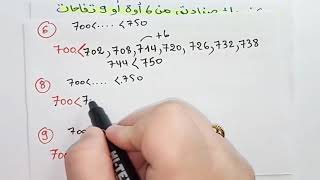 صناديق من 6 أو 8 أو 9 تفاحات
6 700<....<750
+6
700<702,708,714,720,726,732,738
744<750
8 700<....<750
700<7
9 700
700
MULTI